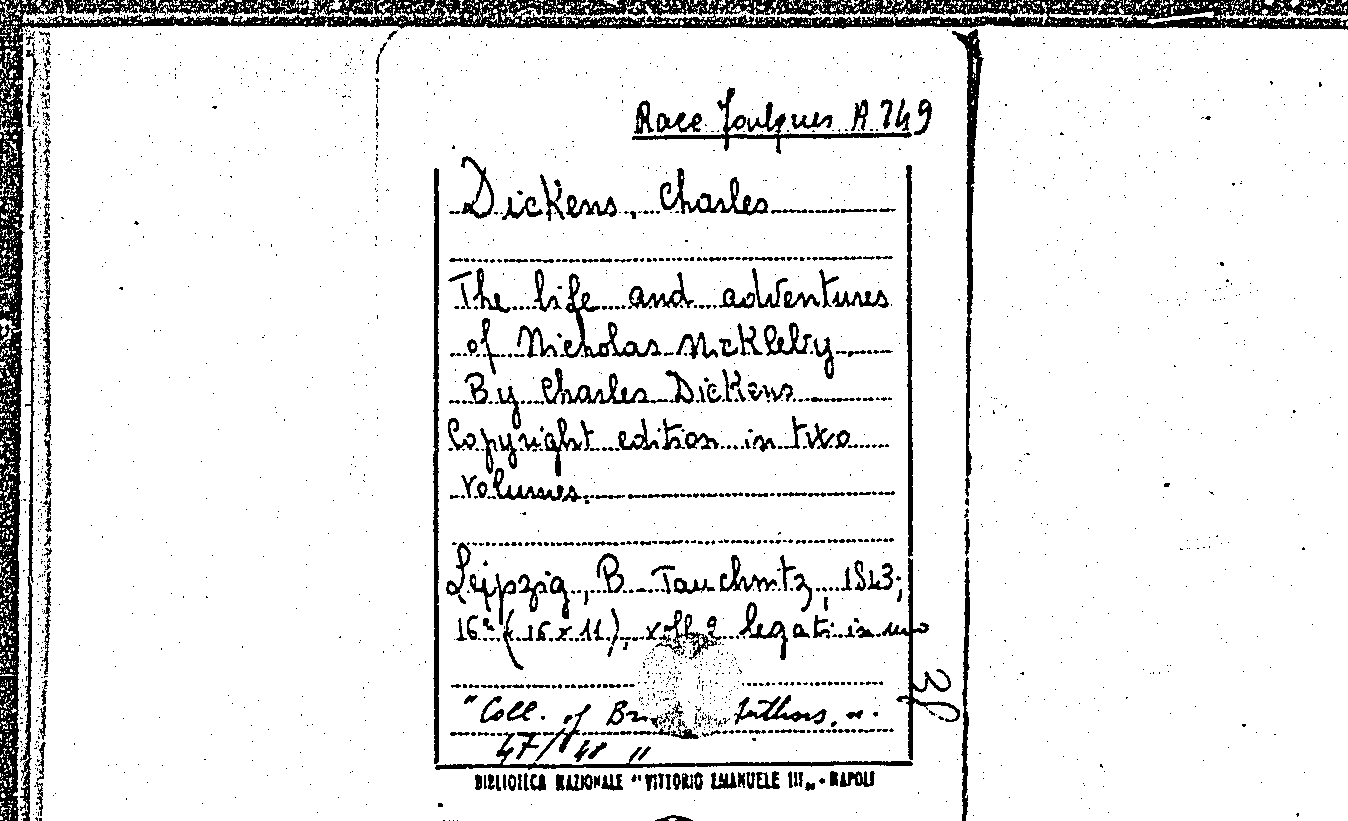 Race Foulques A 749
Dickens, Charles
The life and adventures
of Nicholas Nickleby
By Charles Dickens
Copyright edition in two
volumes.
Leipzig, B. Tauchnitz, 1843;
16° (16 x 11), voll 2 legati in uno
"Coll. of Authors, n.
47/48"
38
BIBLIOTECA NAZIONALE "VITTORIO EMANUELE III" - NAPOLI